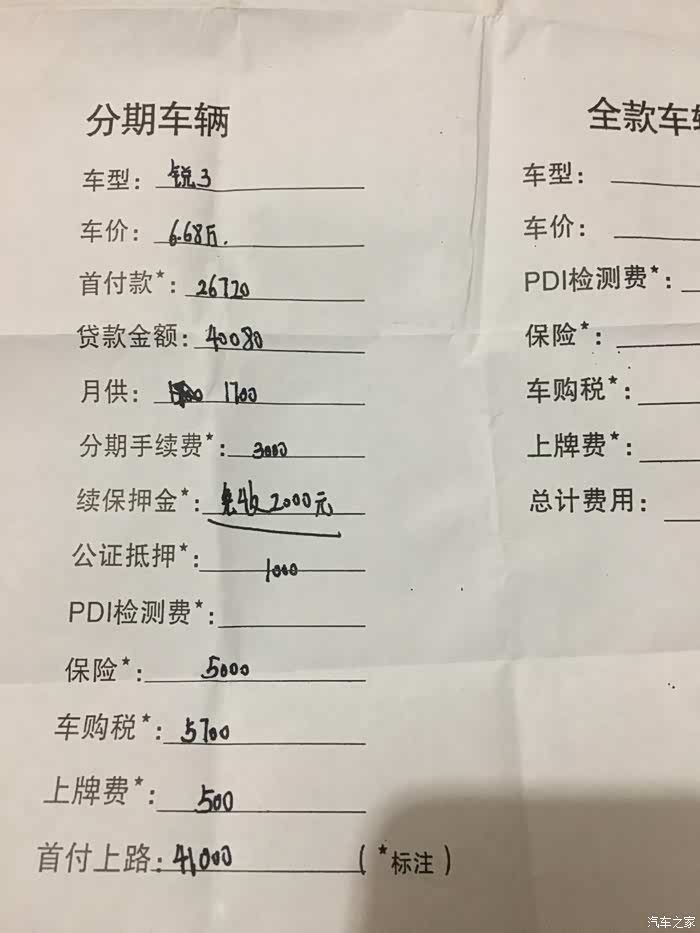 分期车辆
车型: 锐3
车价: 6.68万.
首付款*: 26720
贷款金额: 40080
月供: 1700
分期手续费*: 3000
续保押金*: 免收2000元
公证抵押*: 1000
PDI检测费*:
保险*: 5000
车购税*: 5700
上牌费*: 500
首付上路: 41000 (*标注)
全款车
车型:
车价:
PDI检测费*:
保险*:
车购税*:
上牌费*:
总计费用:
汽车之家